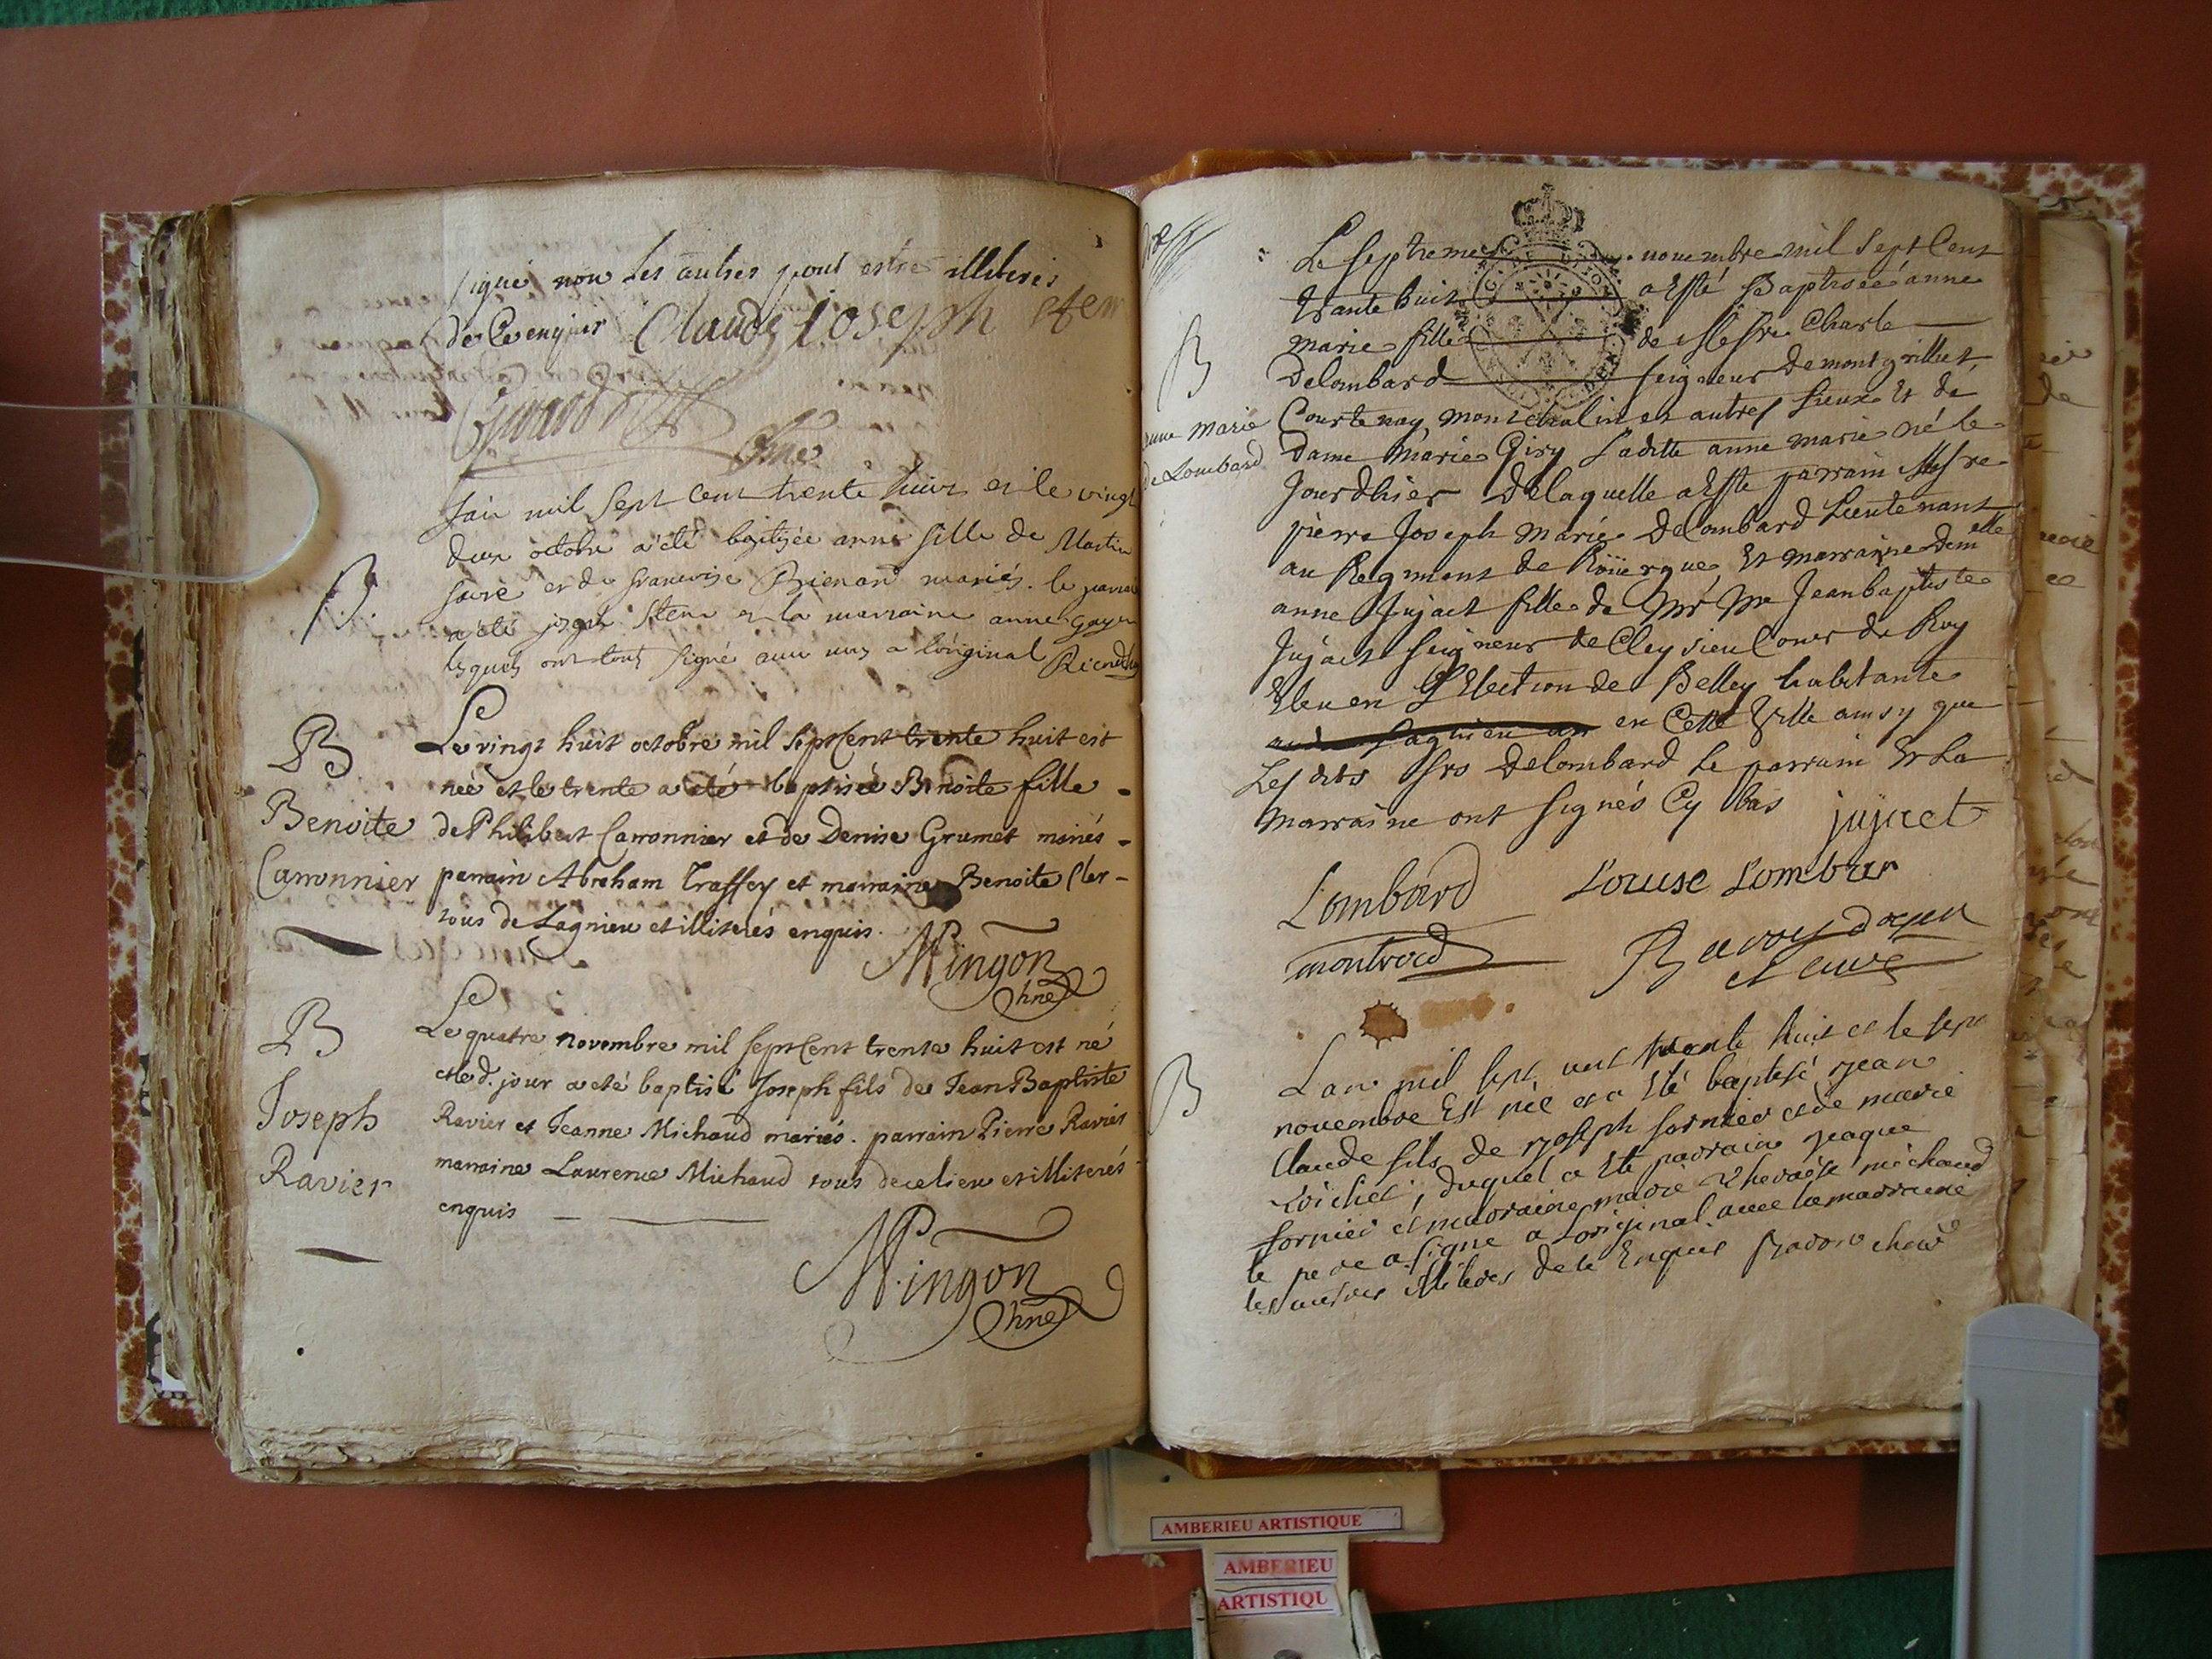 signé non les autres pour estre illiterés
de ce enquis Claude Joseph Sten
L'an mil sept cent trente huit et le vingt
deux octobre a été baptizée anne fille de Martin
et de francoise mariés. le parrain
a été Sten et la marraine anne
lesquels ont tous signé avec nous a l'original
B
B
Benoite
Carronnier
Le vingt huit octobre mil sept cent trente huit est
née et le trente a été baptisée Benoite fille
de Philibert Carronnier et de Denise Grumet mariés
parrain Abraham Traffey et marraine Benoite Cler
tous de Lagnieu et illiterés enquis.
Mingon
Chne
B
Joseph
Ravier
Le quatre novembre mil sept cent trente huit est né
et led. jour a été baptisé Joseph fils de Jean Baptiste
Ravier et Jeanne Michaud mariés. parrain Pierre Ravier
marraine Laurence Michaud tous de ce lieu et illiterés
enquis
Mingon
Chne
B
anne marie
de Lombard
Le septieme novembre mil sept Cent
trante huit a Esté Baptisée anne
marie fille de Messre Charle
Delombard seigneur de montgrillet,
Courtenay, et autres lieux Et de
Dame Marie Giry Laditte anne marie né le
Jourdhier De laquelle a Esté parrain Messre
pierre Joseph Marie Delombard Lieutenant
au Regiment de Roüergue Et marraine Demelle
anne Jujact fille de Mr Me Jean baptiste
Jujact seigneur de Cleysieu Coner du Roy
Eleu en L'Election de Belley habitante
en Cette Ville ainsy que
Les dits Srs Delombard Le parrain Et La
marraine ont signés Cy bas jujact
Lombard Louise Lombar
montrod
doyen
et curé
B
L'an mil sept cent trente huit et le sept
novembre Est né et a Eté baptisé jean
Claude fils de joseph fornier et de marie
duquel a Eté parrain jaque
fornier et marraine marie michaud
le pere a signé a Loriginal avec la marraine
les autres illiteres de ce Enquis
AMBERIEU ARTISTIQUE
AMBERIEU
ARTISTIQU